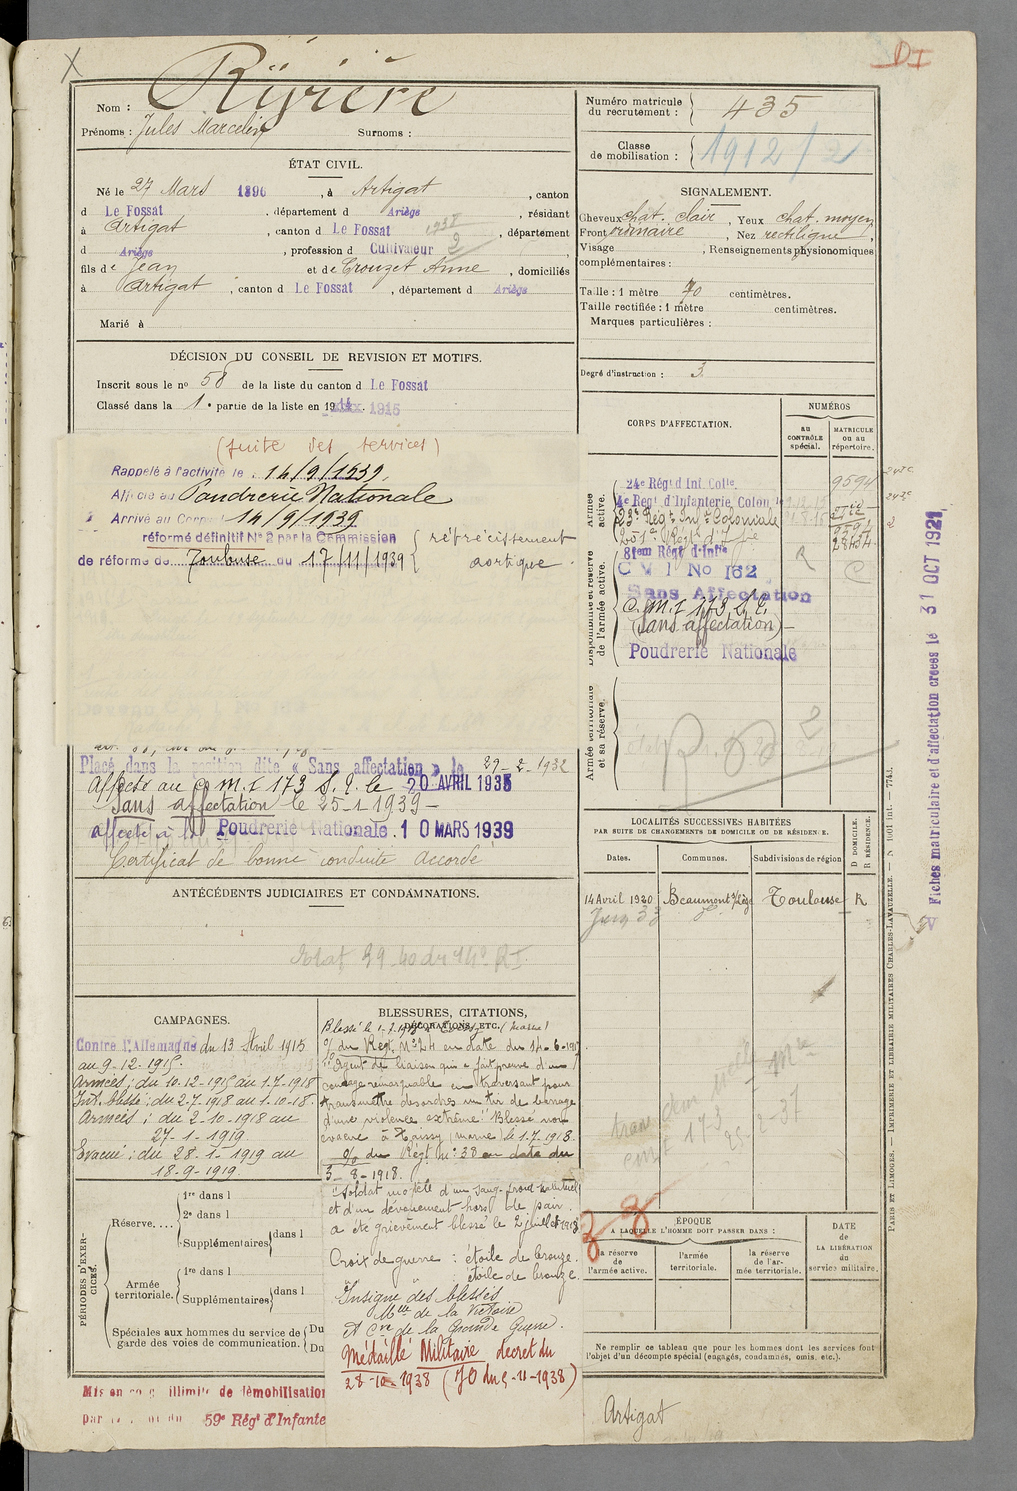 DI
Nom : Rivière
Prénoms : Jules Marcelin Surnoms :
Numéro matricule du recrutement : 435
Classe de mobilisation : 1912 / 2
ÉTAT CIVIL.
Né le 27 Mars 1896, à Artigat, canton
d Le Fossat, département d Ariège, résidant
à Artigat, canton d Le Fossat, département
d Ariège, profession d Cultivateur 2
fils de Jean et de Crouzet Anne, domiciliés
à Artigat, canton d Le Fossat, département d Ariège
Marié à
SIGNALEMENT.
Cheveux chat. clair, Yeux chat. moyen
Front ordinaire, Nez rectiligne,
Visage , Renseignements physionomiques
complémentaires :
Taille : 1 mètre 70 centimètres.
Taille rectifiée : 1 mètre centimètres.
Marques particulières :
Degré d'instruction : 3
DÉCISION DU CONSEIL DE REVISION ET MOTIFS.
Inscrit sous le n° 58 de la liste du canton d Le Fossat
Classé dans la 1e partie de la liste en 19 1915
(suite des services)
Rappelé à l'activité le : 14/9/1939
Affecté au Poudrerie Nationale
Arrivé au Corps 14/9/1939
réformé définitif N° 2 par la Commission
de réforme de Toulouse du 17/11/1939
rétrécissement
aortique.
Placé dans la position dite « Sans affectation » le 29-2-1932
Affecté au C.M.I 173 S.E. le 20 AVRIL 1935
Sans affectation le 25-1-1939 -
affecté à la Poudrerie Nationale. 10 MARS 1939
Certificat de bonne conduite Accordé
CORPS D'AFFECTATION.
NUMÉROS
au CONTRÔLE spécial.
MATRICULE ou au répertoire.
Armée active.
24e Régt d'Inf. Colle. 9594
4e Régt d'Infanterie Colon
23e Régt Inftie Coloniale
251e Régt d'Iftie
Disponibilité et réserve de l'armée active.
81em Régt d'Inftie
C V I No 162
Sans Affectation
C.M.I 173 S.E.
(Sans affectation) -
Poudrerie Nationale
Armée territoriale et sa réserve.
2
LOCALITÉS SUCCESSIVES HABITÉES
PAR SUITE DE CHANGEMENTS DE DOMICILE OU DE RÉSIDENCE.
Dates. Communes. Subdivisions de région
D DOMICILE. R RÉSIDENCE.
14 Avril 1930 Beaumont s/Lèze Toulouse R
Juin 33
ANTÉCÉDENTS JUDICIAIRES ET CONDAMNATIONS.
Etat 39-40 du 14e RI
CAMPAGNES.
Contre l'Allemagne du 13 Avril 1915
au 9-12-1915.
Armées : du 10-12-1915 au 1-7-1918
Int. blessé : du 2-7-1918 au 1-10-18.
Armées : du 2-10-1918 au
27-1-1919.
Evacué : du 28-1-1919 au
18-9-1919.
BLESSURES, CITATIONS,
DÉCORATIONS, ETC.
Blessé le 1-7-1918 (Marne)
O/ du Régt N° 24 en date du 14-6-1917
"Agent de liaison qui a fait preuve d'un
courage remarquable en traversant pour
transmettre des ordres un tir de barrage
d'une violence extrême." Blessé non
évacué à (Marne) le 1-7-1918.
O/ du Régt N° 38 en date du
3-8-1918.
"Soldat modèle d'un sang-froid habituel
et d'un dévouement hors de pair.
a été grièvement blessé le 2 juillet 1918
Croix de guerre : étoile de bronze.
" " étoile de bronze.
Insigne des blessés
Mlle de la Victoire
et Cve de la Grande Guerre.
Médaillé Militaire décret du
28-10-1938 (JO du 5-11-1938)
PÉRIODES D'EXERCICES.
Réserve....
1re dans l
2e dans l
Supplémentaires dans l
Armée territoriale.
1re dans l
Supplémentaires dans l
Spéciales aux hommes du service de garde des voies de communication. Du Du
173 25-2-37
ÉPOQUE
A LAQUELLE L'HOMME DOIT PASSER DANS :
la réserve de l'armée active.
l'armée territoriale.
la réserve de l'armée territoriale.
DATE de LA LIBÉRATION du service militaire.
Ne remplir ce tableau que pour les hommes dont les services font
l'objet d'un décompte spécial (engagés, condamnés, omis, etc.).
Mis en congé illimité de démobilisation
59e Régt d'Infante
Artigat
Fiches matriculaire et d'affectation creées le 31 OCT 1921
PARIS ET LIMOGES. — IMPRIMERIE ET LIBRAIRIE MILITAIRES CHARLES-LAVAUZELLE. — N° 1001 Int. — 7743.